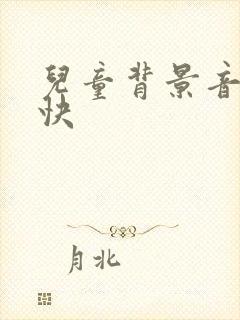 兒童背景音
快
月北